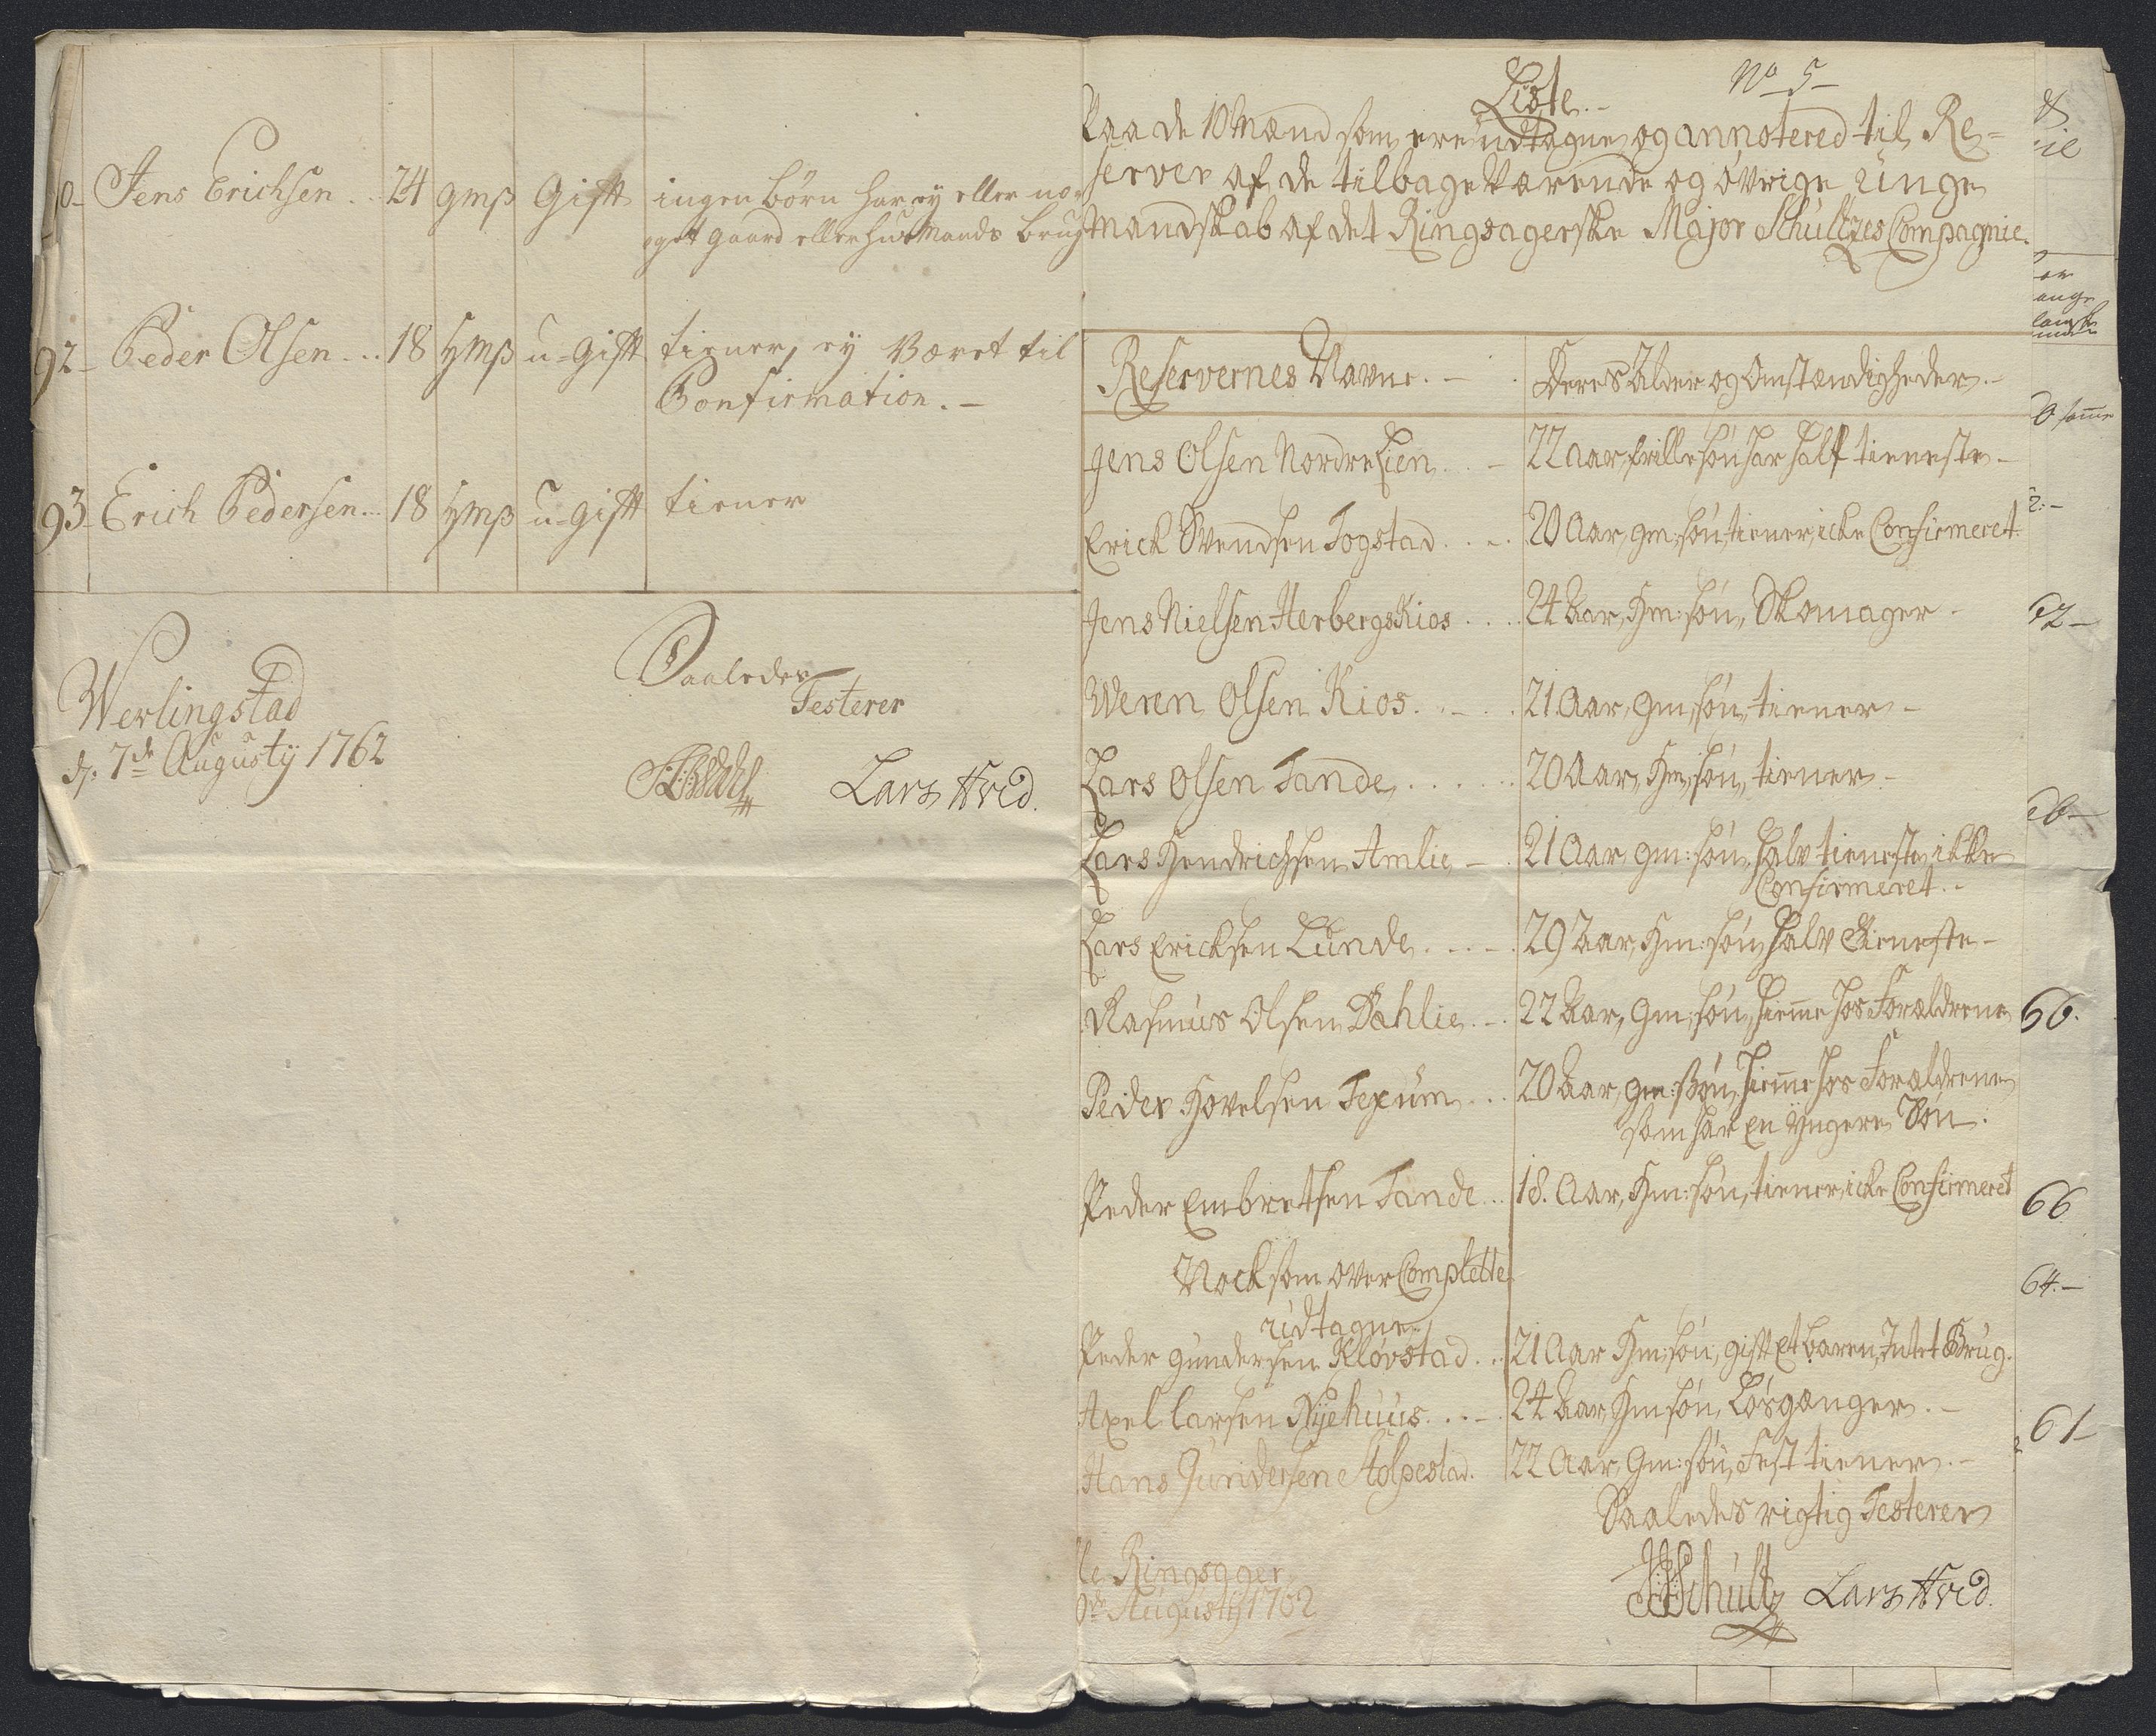 Jens Erichsen .. 24 gmß Gift ingen børn har ey eller no
eget gaard eller huusmands brug
92- Peder Olsen ... 18 hmß u-gift tiener, ey Været til
Confirmation. -
93- Erich Pedersen... 18 hmß u-gift tiener
Werlingstad
d. 7de Augusty 1762
Saaledes
Testerer
Lars Hvid.
No 5-
Liste.-
Paa de 10 Mænd som ere udtagne og annotered til Re=
server af de tilbageværende og øvrige unge
Mandskab af det Ringsagerske Major Schultzes Compagnie.
Reservernes Navne. - Deres Alder og Omstændigheder.-
Jens Olsen Nordre Lien .. - 22 Aar, frille søn har half tieneste-
Erick Svendsen Togstad . . - 20 Aar, gm: søn, tiener, icke Confirmeret.
Jens Nielsen HerbergsKios .... 24 Aar, Hm: søn, Skomager -
Weren Olsen Kios. . - . 21 Aar, gm, søn, tiener -
Lars Olsen Tande . . . . . . 20 Aar, Hm, søn, tiener -
Lars Hendrichsen Amlie - . 21 Aar, gm: søn, halv tieneste, ikke
Confirmeret. -
Lars Ericksen Lunde . . - . 29 Aar, Hm: søn, halv tieneste -
Rasmus Olsen Dahlie . - . 22 Aar, gm, søn, hiemme hos Forældrene
Peder Hovelsen Texum ... 20 Aar, gm: Søn, hiemme hos Forældrene
som har en yngere Søn.
Peder Embretsen Tande .. 18. Aar, Hm: søn, tiener, icke Confirmeret
Nock som over Complette
udtagne
Peder Gundersen Kløvstad . . . 21 Aar Hm: søn, gift Et baren, Intet Brug.
Axel larsen Nÿehuus . . . - . 24 Aar, Hm søn, Løsgænger . -
Hans Gundersen Stolpestad. 22 Aar, Gm: søn, Fest tiener. -
Saaledes rigtig Testerer
Ringsager
Augustÿ 1762
Schultz Lars Hvid.
66.
66
64.-
61-